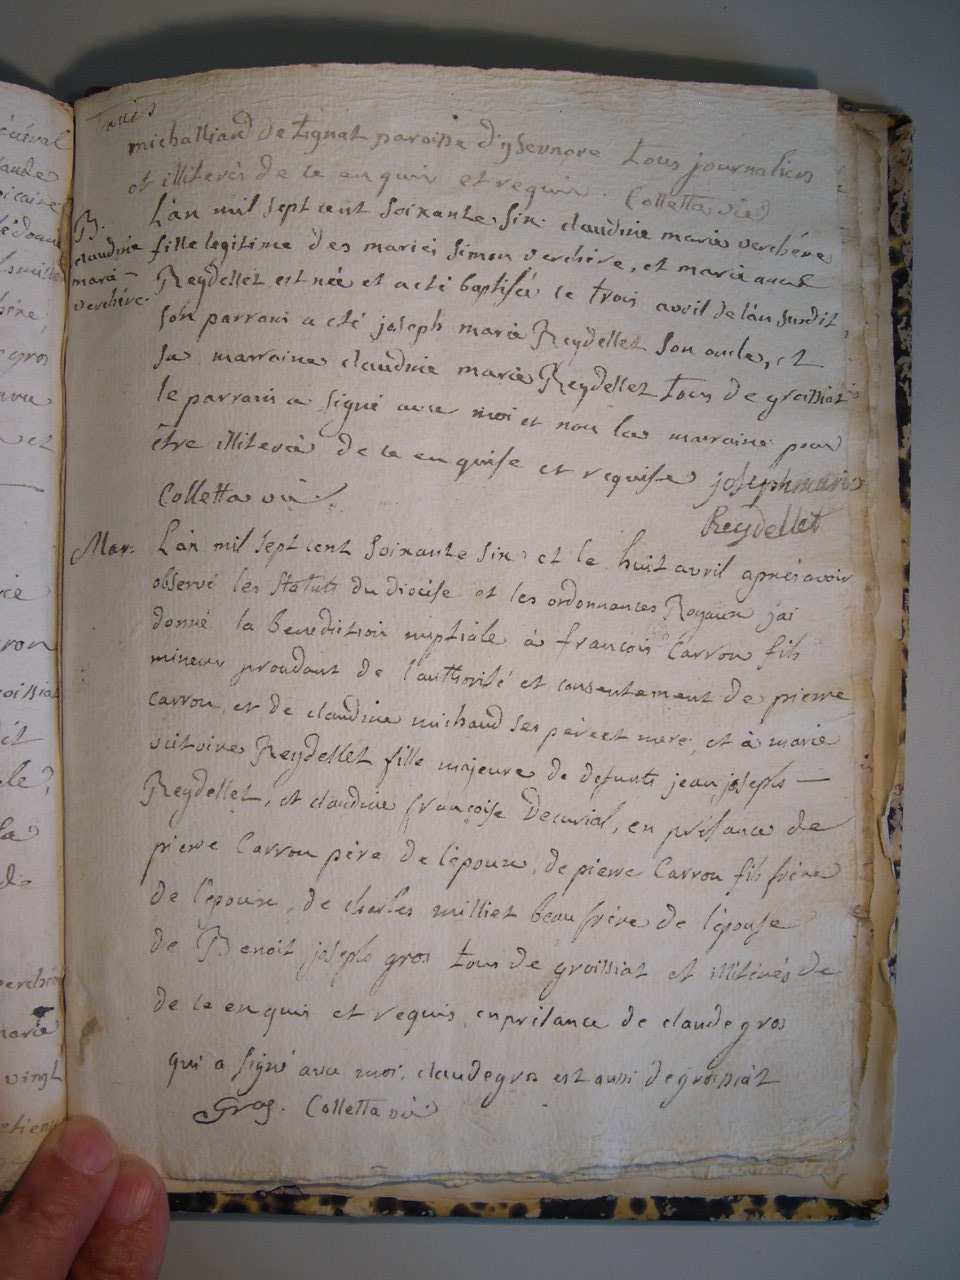 michalliand de tignat paroisse d'ysernore tous journaliers
et illiterés de ce enquis et requis. Colletta vic
B.
claudine
marie
verchére
L'an mil sept cent soixante six claudine marie verchére
fille legitime des mariés simon verchére, et marie
Reydellet est née et a eté baptisée ce trois avril de l'an susdit,
son parrain a eté joseph marie Reydellet son oncle, et
sa marraine claudine marie Reydellet tous de groissiat
le parrain a signé avec moi et non la marraine pour
être illiterée de ce enquise et requise joseph marie
Reydellet
Colletta vic
Mar.
L'an mil sept cent soixante six et le huit avril après avoir
observé les statuts du diocése et les ordonnances Royaux j'ai
donné la benediction nuptiale à françois Carron fils
mineur procedant de l'authorité et consentement de pierre
carron, et de claudine michaud ses pére et mere, et à marie
victoire Reydellet fille majeure de defunts jean joseph
Reydellet, et claudine françoise Decurial, en présance de
pierre Carron pére de l'epoux, de pierre Carron fils frére
de l'epoux, de charles milliet beau frére de l'épouse
de Benoit joseph gros tous de groissiat et illiterés de
de ce enquis et requis, en présance de claude gros
qui a signé avec moi, claude gros est aussi de groissiat
Gros. Colletta vic